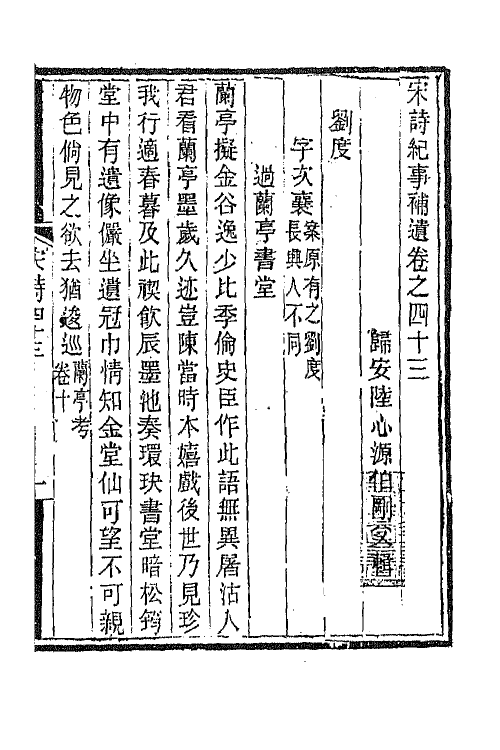 宋詩紀事補遺卷之四十三
歸安陸心源伯剛父輯
劉度
字次襄案原有之劉度長興人不同
過蘭亭書堂
蘭亭擬金谷逸少比季倫史臣作此語無異屠沽人
君看蘭亭墨歲久迹豈陳當時本嬉戲後世乃見珍
我行適春暮及此禊飲辰墨池奏環玦書堂暗松筠
堂中有遺像儼坐遺冠巾情知金堂仙可望不可親
物色倘見之欲去猶逡巡蘭亭考卷十